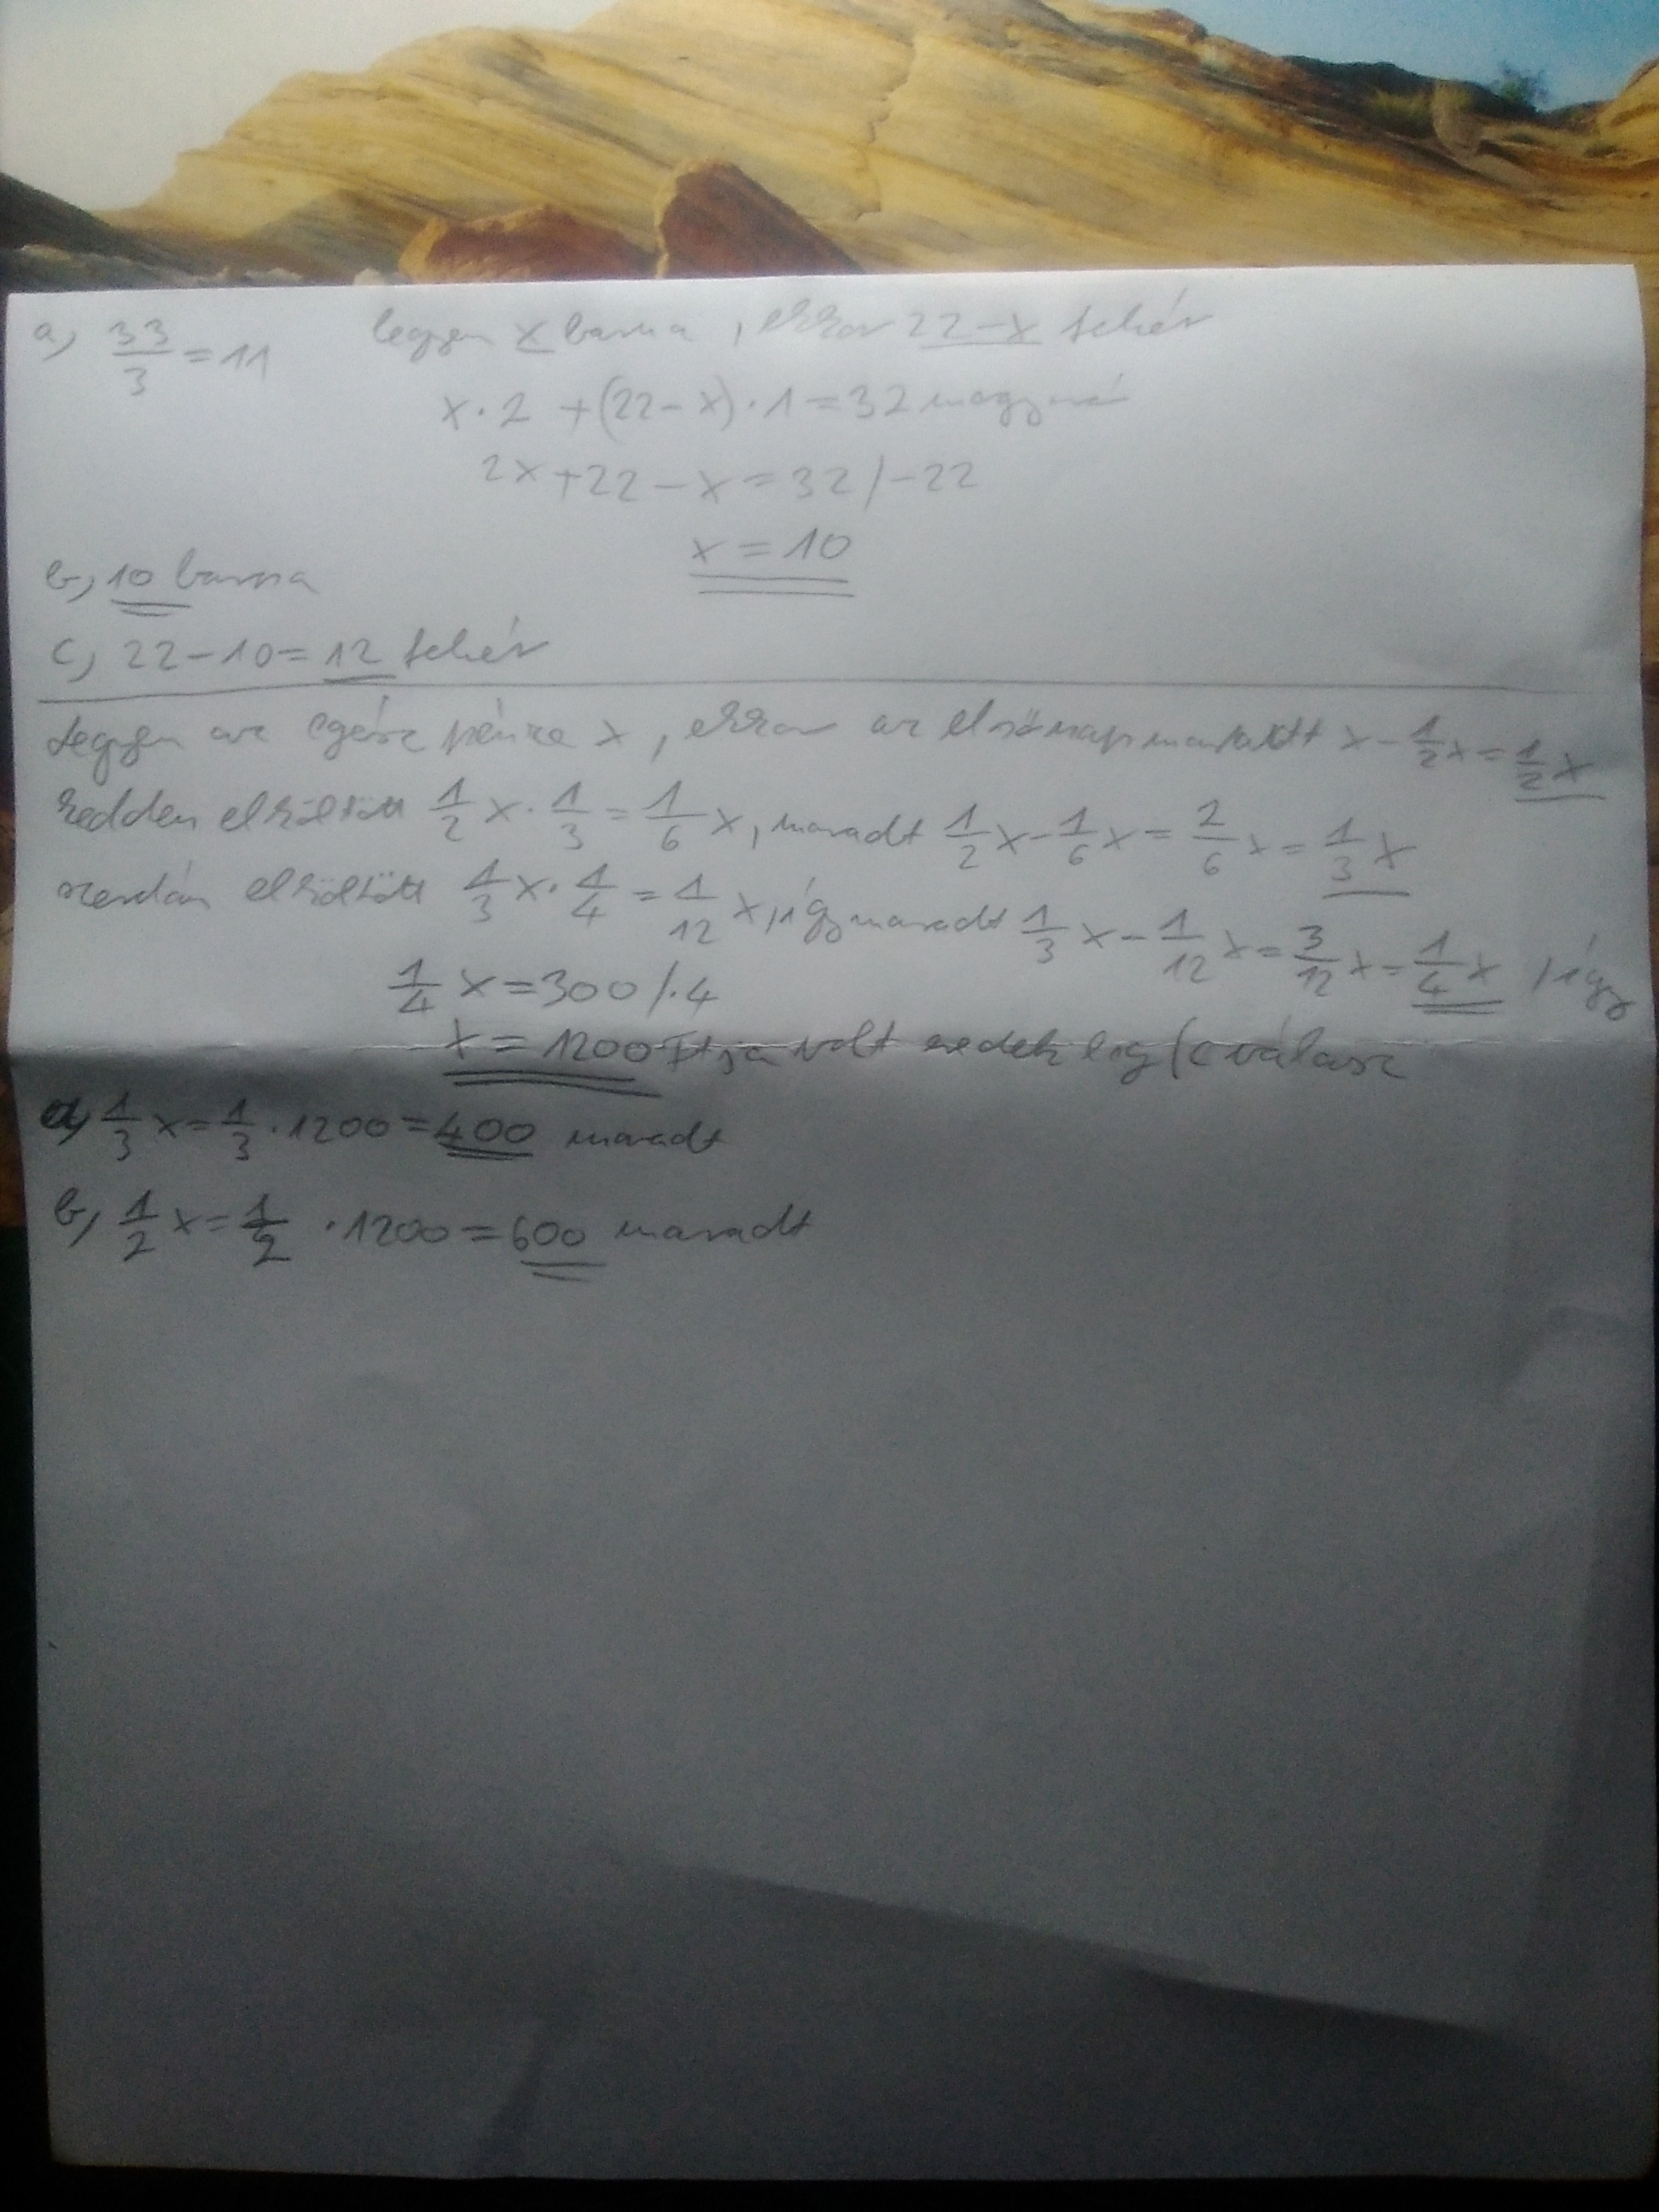 a, 33/3 = 11 legyen x barna, ekkor 22-x fehér
x · 2 + (22-x) · 1 = 32 mogyoró
2x + 22 - x = 32 /-22
x = 10
b, 10 barna
c, 22-10=12 fehér
Legyen az egész pénze x, ekkor az első nap maradt x - 1/2x = 1/2x
kedden elköltött 1/2 x · 1/3 = 1/6 x, maradt 1/2 x - 1/6 x = 2/6 x = 1/3 x
szerdán elköltött 1/3 x · 1/4 = 1/12 x, így maradt 1/3 x - 1/12 x = 3/12 x = 1/4 x, így
1/4 x = 300 /·4
x = 1200 Ft-ja volt eredetileg (c válasz
a, 1/3 x = 1/3 · 1200 = 400 maradt
b, 1/2 x = 1/2 · 1200 = 600 maradt